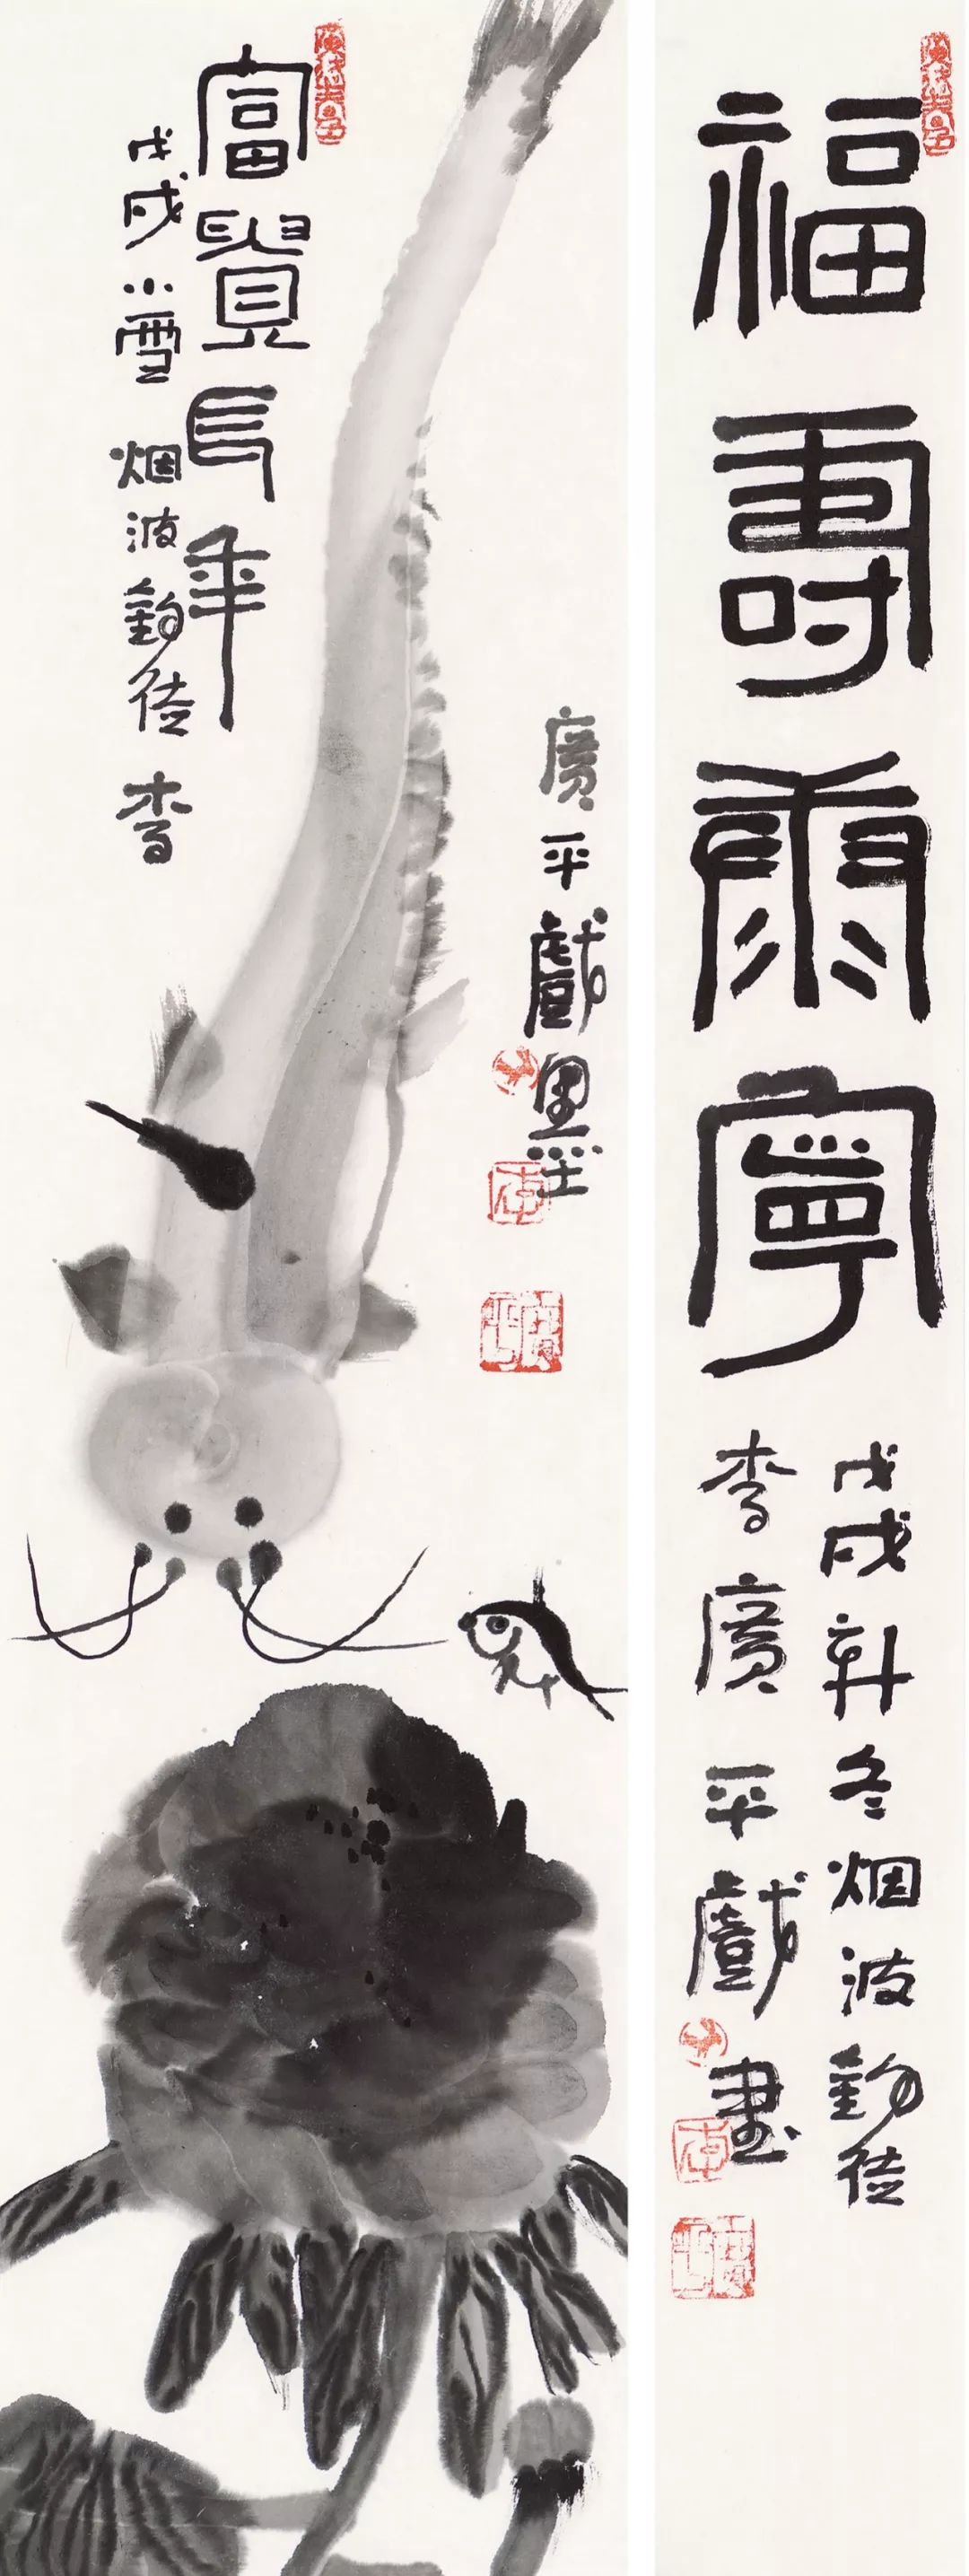 福壽康寧
戊戌新冬烟波釣徒
李廣平戲畫
廣平
富貴長年
戊戌小雪烟波釣徒李
廣平戲墨
廣平